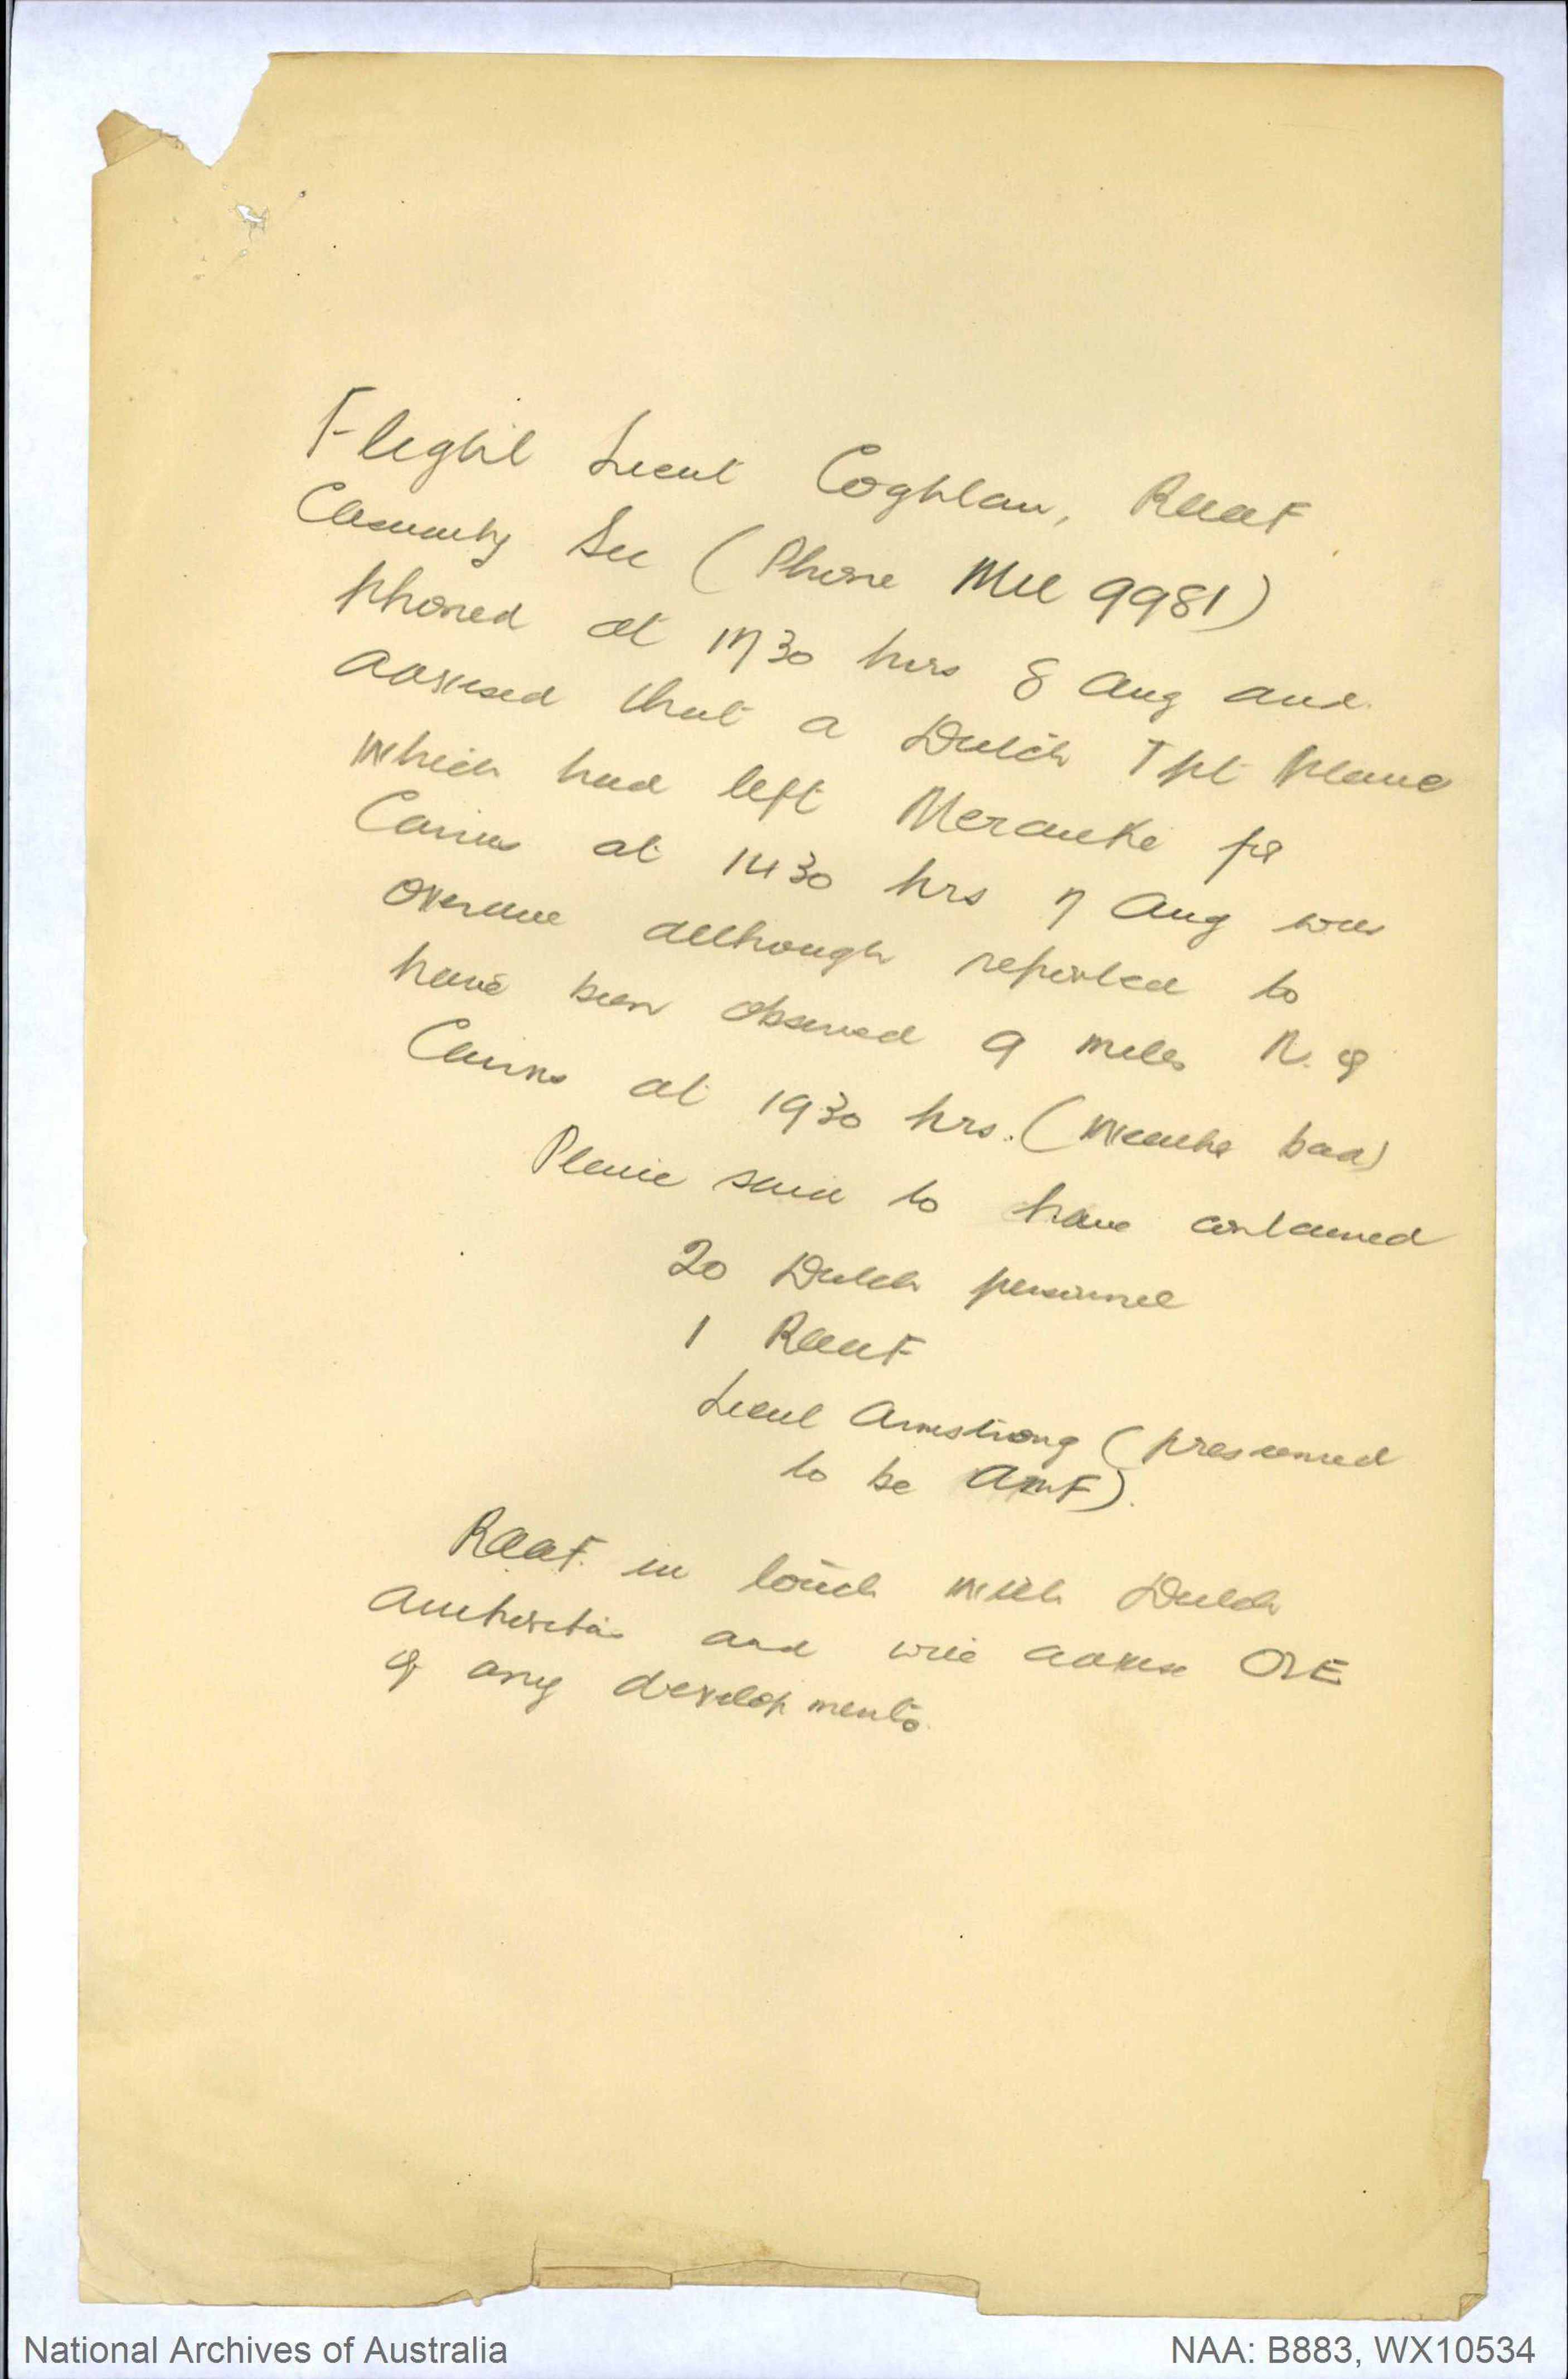 Flight Lieut Coghlan, RAAF
Casualty Sec (Phone MU 9981)
phoned at 1730 hrs 8 Aug and
advised that a Dutch Tpt plane
which had left Merauke for
Cairns at 1430 hrs 7 Aug was
overdue although reported to
have been observed 9 miles N. of
Cairns at 1930 hrs. (Weather bad)
Plane said to have contained
20 Dutch personnel
1 RAAF
Lieut Armstrong (presumed
to be AMF).
RAAF in touch with Dutch
Authorities and will advise
of any developments.
National Archives of Australia
NAA: B883, WX10534